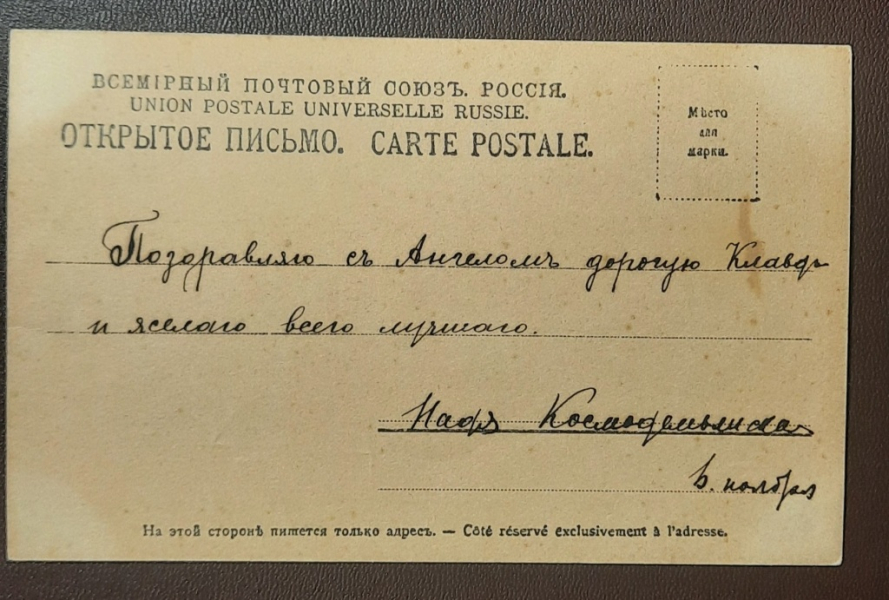 ВСЕМІРНЫЙ ПОЧТОВЫЙ СОЮЗЪ. РОССІЯ.
UNION POSTALE UNIVERSELLE RUSSIE.
ОТКРЫТОЕ ПИСЬМО. CARTE POSTALE.
Мѣсто
для
марки.
Поздравляю съ Ангеломъ дорогую
и желаю всего лучшаго.
Надя
ноября
На этой сторонѣ пишется только адресъ. — Côté réservé exclusivement à l'adresse.